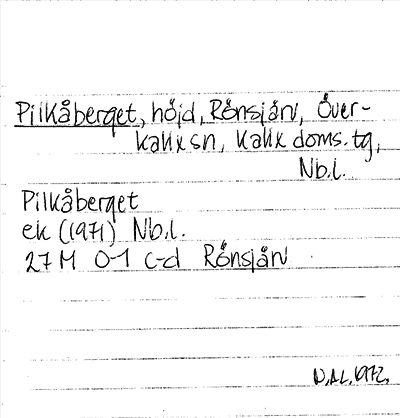 Pilkåberget, höjd, Rönsjärv, Över-
kalix sn, Kalix doms.tg,
Nb.l.
Pilkåberget
ek (1971) Nb.l.
27 M 0-1 c-d Rönsjärv
N.AL.1972.